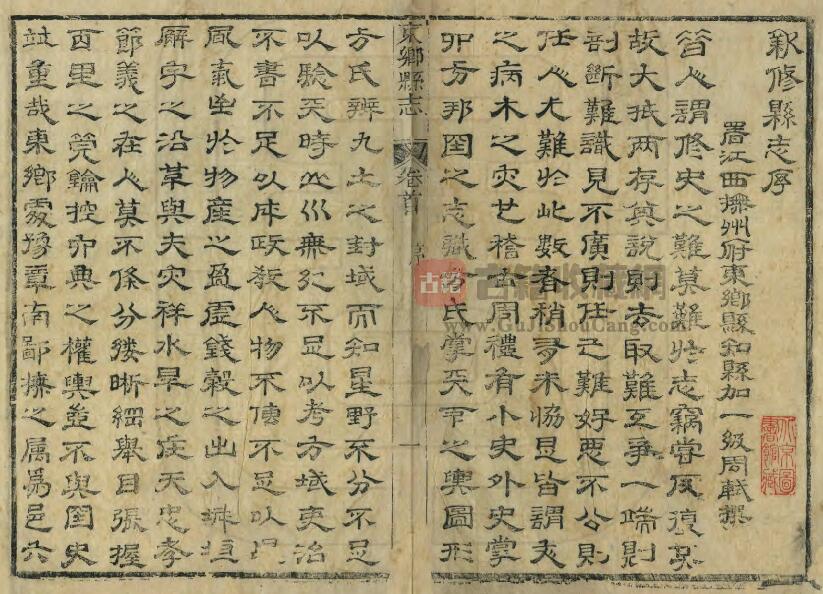 新修縣志序
署江西撫州府東鄉縣知縣加一級周軾撰
昔人謂修史之難莫難於志竊嘗反復求
故大抵兩存其說則去取難互爭一端則
剖斷難識見不廣則任己難好惡不公則
任人尤難於此數者稍有未協是皆謂文
之病木之灾也稽古周禮有小史外史掌
邦國之志職方氏掌天下之輿圖形
方氏辨九土之封域而知星野不分不足
以驗天時山川無紀不足以考方域吏治
不書不足以成政教人物不傳不足以
風氣出於物產之盈虛錢穀之出入城垣
廨宇之沿革與夫灾祥水旱之在天忠孝
節義之在人莫不條分縷晰綱舉目張握
百里之筦鑰控典之權輿並不與國史
並重哉東鄉處豫章南鄙撫之属為邑六
東鄉縣志
卷首
序
一
古籍收藏網
www.GuJiShouCang.com